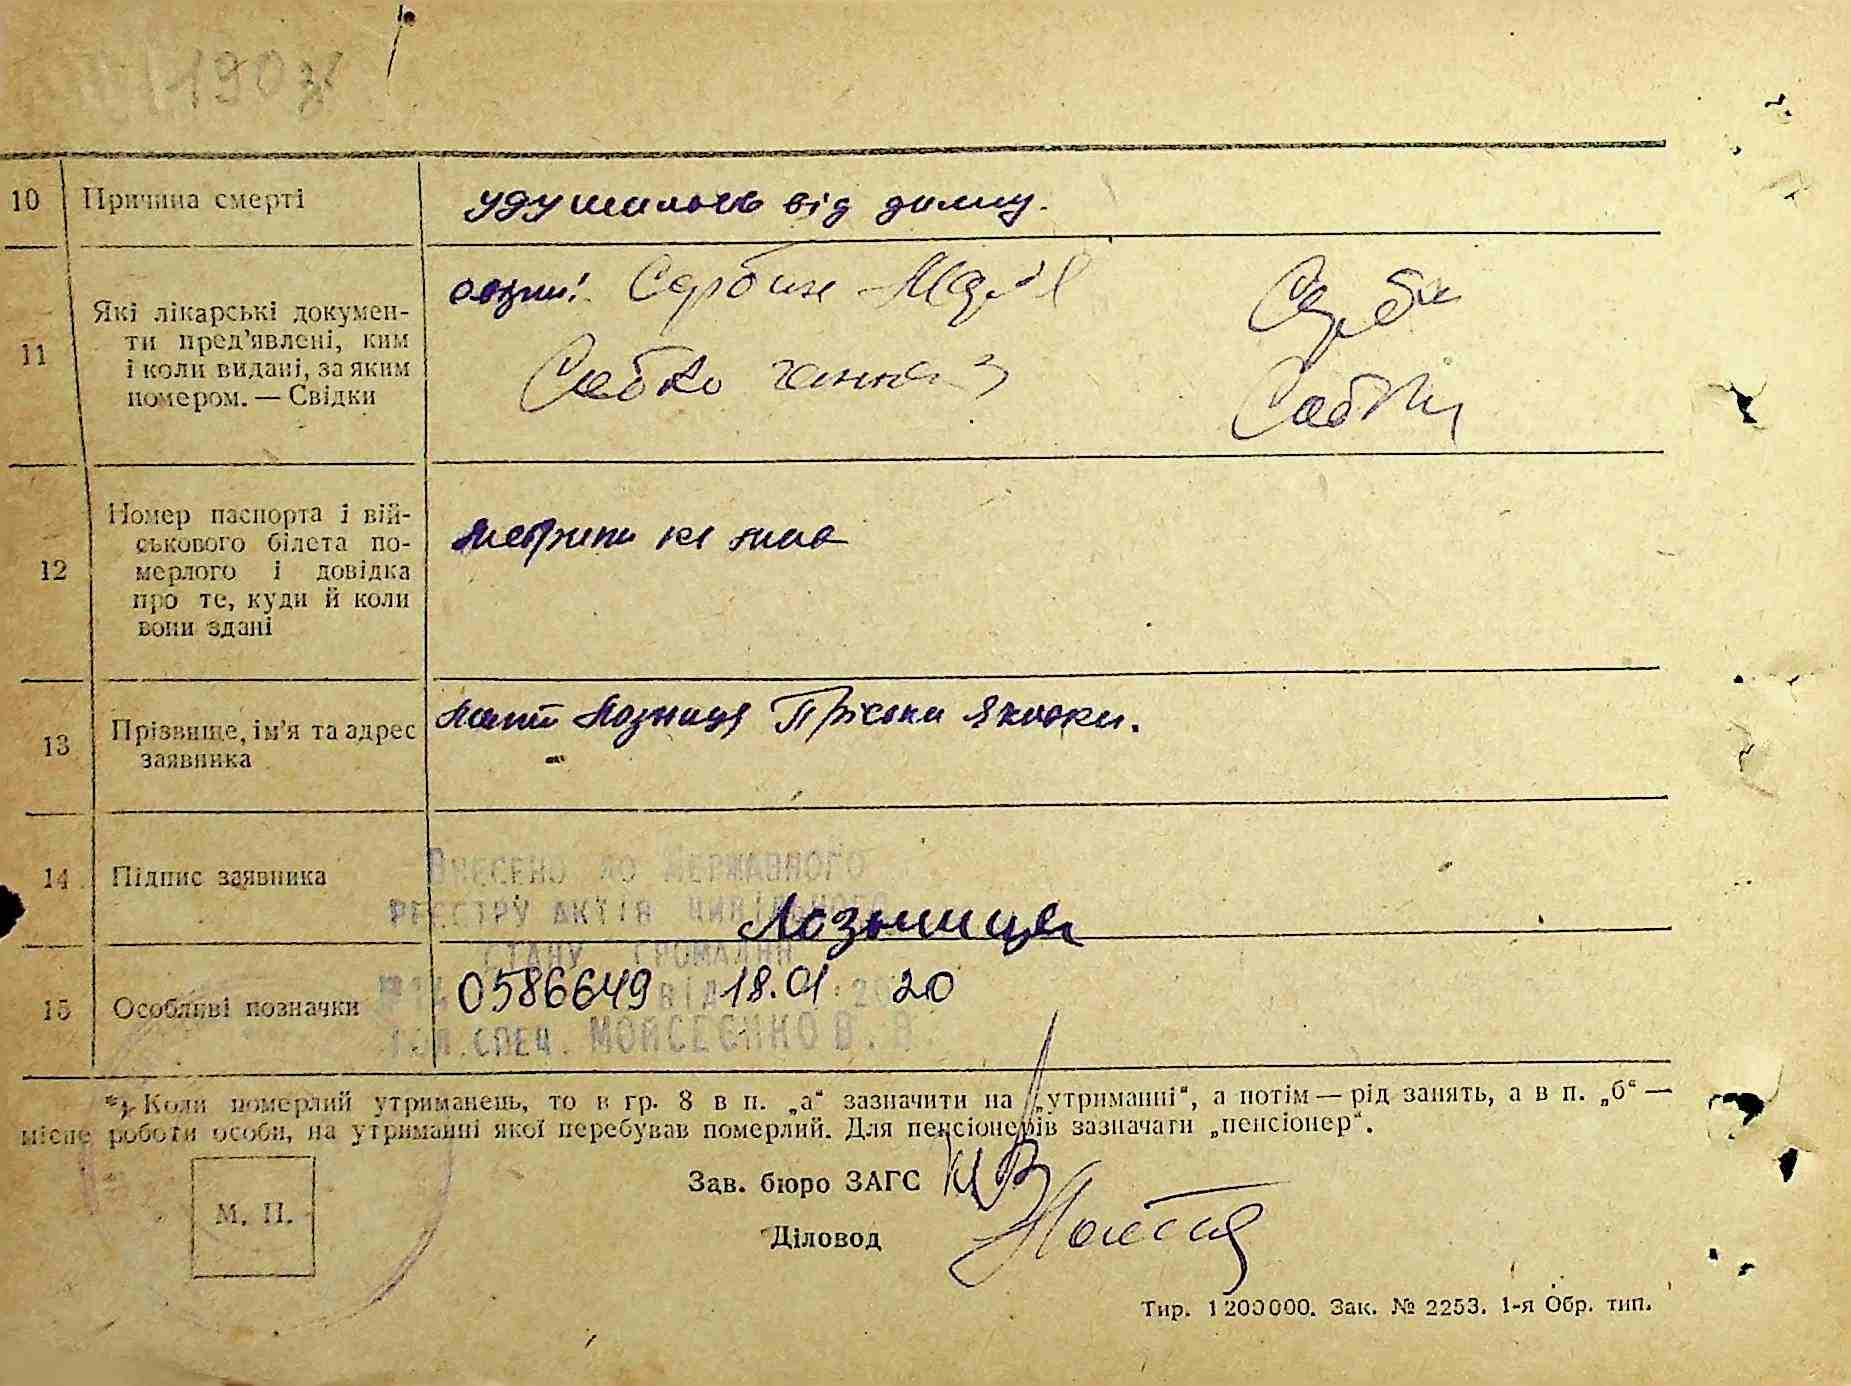 190
10 Причина смерті
удушилось від диму.
11 Які лікарські докумен-
ти пред'явлені, ким
і коли видані, за яким
номером. — Свідки
Сербин
Собко Ганна
12 Номер паспорта і вій-
ськового білета по-
мерлого і довідка
про те, куди й коли
вони здані
метрики не має
13 Прізвище, ім'я та адрес
заявника
Мати Лозниця Пріська Яковки.
14 Підпис заявника
Внесено до Державного
реєстру актів цивільного
Лозниця
стану громадян
15 Особливі позначки
0586649 від 18.01.2020
гол.спец. Мойсеєнко В. В.
*) Коли померлий утриманець, то в гр. 8 в п. „а“ зазначити на „утриманні“, а потім — рід занять, а в п. „б“ —
місце роботи особи, на утриманні якої перебував померлий. Для пенсіонерів зазначати „пенсіонер“.
М. П.
Зав. бюро ЗАГС
Діловод
Тир. 1200000. Зак. № 2253. 1-я Обр. тип.